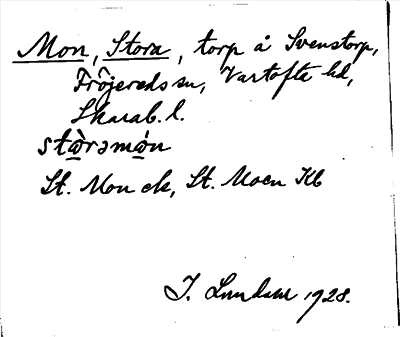 Mon, Stora, torp å Svenstorp,
Fröjereds sn, Vartofta hd,
Skarab. l.
stɑ̀rəmón
St. Mon ek, St. Moen Kb
J. Lundahl 1928.